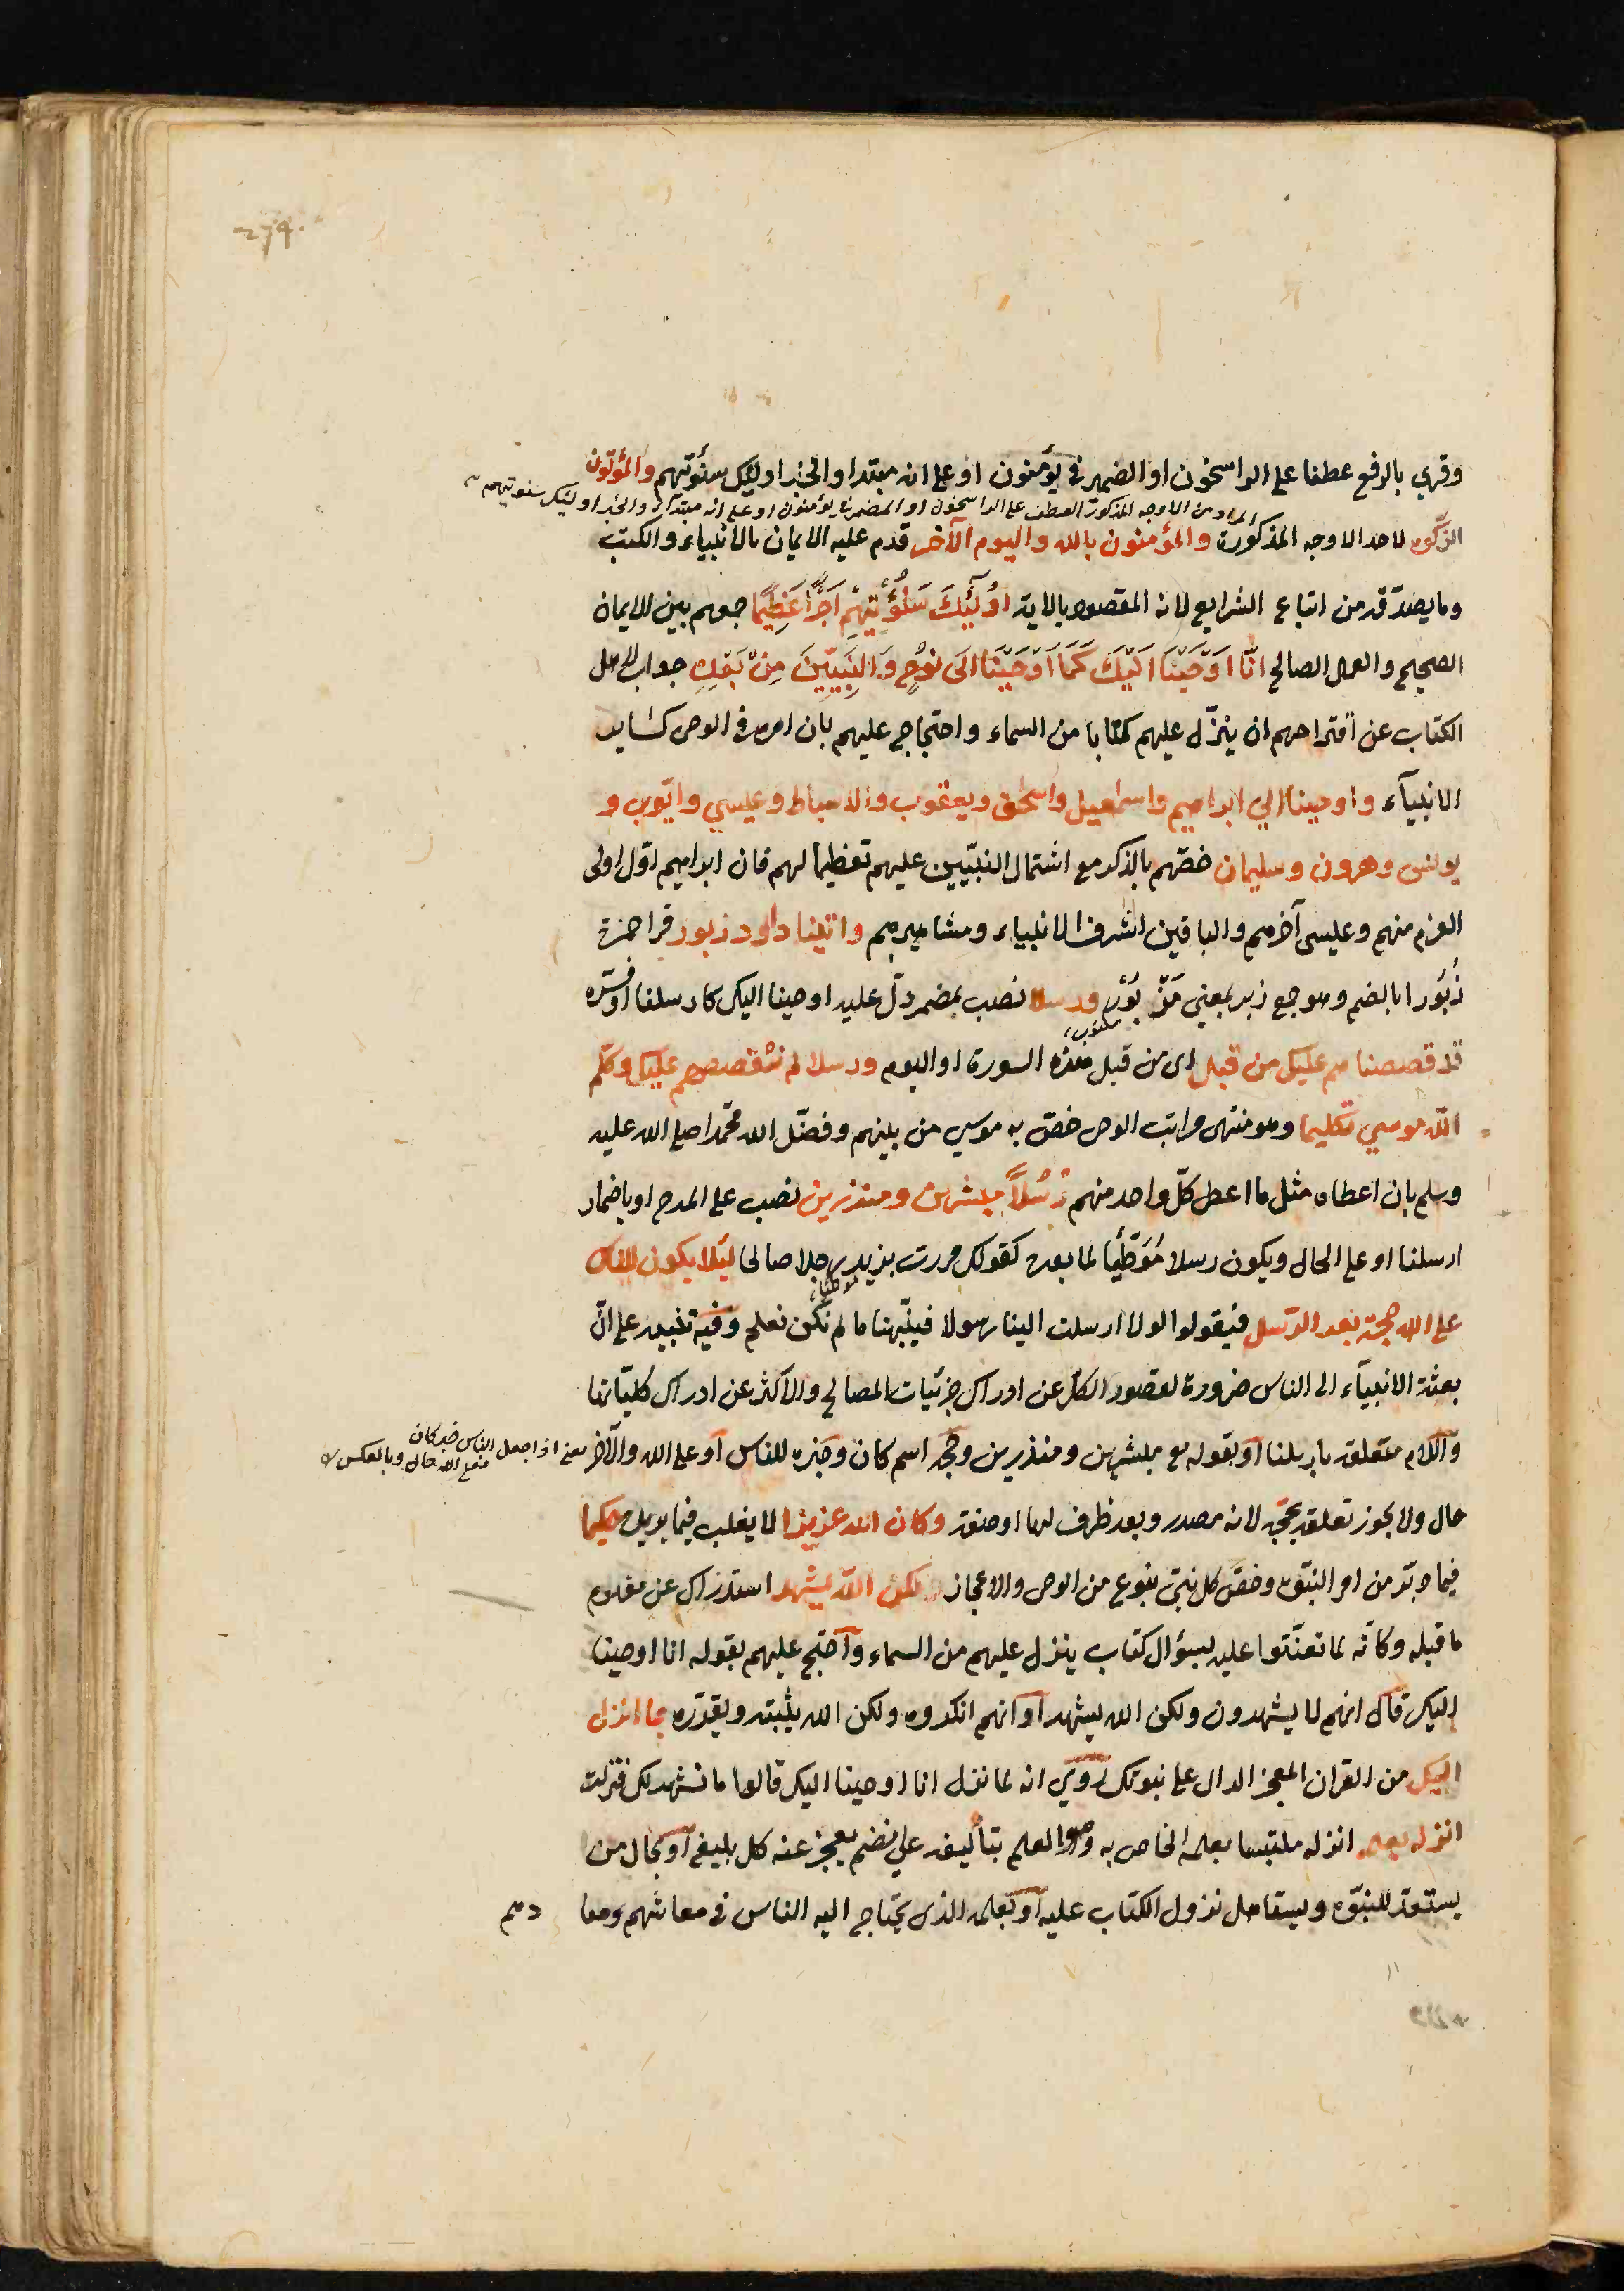 274.
وقرئ بالرفع عطفا على الراسخون او الضمير في يؤمنون او على انه مبتدا والخبر اولئك سنؤتيهم والمؤتون
المراد من الاوجه المذكورة العطف على الراسخون او المضمر في يؤمنون او على انه مبتدا والخبر اولئك سنوتيهم
الزكوة لاحد الاوجه المذكورة والمؤمنون بالله واليوم الآخر قدم عليه الايمان بالانبياء والكتب
وما يصدّقه من اتباع الشرايع لانه المقصود بالاية اُولَٰئِكَ سَنُؤْتِيهِمْ اَجْرًا عَظِيمًا جمعهم بين الايمان
الصحيح والعمل الصالح اِنَّا اَوْحَيْنَا اِلَيْكَ كَمَا اَوْحَيْنَا اِلَى نُوحٍ وَالنَّبِيِّينَ مِنْ بَعْدِهِ جواب لاهل
الكتاب عن اقتراحهم ان ينزّل عليهم كتابا من السماء واحتجاج عليهم بان امره في الوحي كساير
الانبيآء واوحينا الي ابراهيم واسمعيل واسحق ويعقوب والاسباط وعيسي وايّوب و
يونس وهرون وسليمان خصّهم بالذكر مع اشتمال النبيّين عليهم تعظيما لهم فان ابراهيم اوّل اولى
العزم منهم وعيسى آخرهم والباقين اشرف الانبياء ومشاهيرهم واتينا داود زبور قرا حمزة
زُبُورا بالضم وهو جمع زبر بمعني مَزْبُوْر ورسلا نصب بمضمر دلّ عليه اوحينا اليك كارسلنا اوفسّره
مكتوب
قد قصصناهم عليك من قبل اى من قبل هذه السورة او اليوم ورسلا لم نقصصهم عليك وكلّم
اللّه موسي تكليما وهو منتهى مراتب الوحى خصّ به موسي من بينهم وفضّل الله محمّدا صلى الله عليه
وسلم بان اعطاه مثل ما اعطى كلّ واحد منهم رُسُلًا مبشرين ومنذرين نصب على المدح او باضمار
ارسلنا او على الحال ويكون رسلا مُوَطِّئًا لما بعده كقولك مررت بزيد رجلا صالحا لئلا يكون للناس
على الله حجة بعد الرّسل فيقولوا لولا ارسلت الينا رسولا فينبّهنا ما لم نكن نعلم وفيه تنبيه على انّ
بعثة الانبيآء الى الناس ضرورة لقصور الكل عن ادراك جزئيات المصالح والاكثر عن ادراك كليّاتها
واللام متعلق بارسلنا او بقوله مع مبشرين ومنذرين وحجة اسم كان وخبره للناس او على الله والآخر
معنى اذا جعل الناس خبر كان فعلى الله حال وبالعكس
حال ولا يجوز تعلقه بحجّة لانه مصدر وبعد ظرف لها او صفة وكان الله عزيزا لا يغلب فيما يريد حكيما
فيما دبّر من امر النبوّة وخصّ كل نبيّ بنوع من الوحى والاعجاز لكن اللّه يشهد استدراك عن مفهوم
ما قبله وكانّه لما تعنّتوا عليه بسؤال كتاب ينزل عليهم من السماء واحتج عليهم بقوله انا اوحينا
اليك قال انهم لا يشهدون ولكن الله يشهد او انهم انكروه ولكن الله يثبته ويقرّره بما انزل
اليك من القران المعجز الدال على نبوتك روي انه لما نزل انا اوحينا اليك قالوا ما نشهد لك فنزلت
انزله بعلمه انزله ملتبسا بعلمه الخاص به وهو العلم بتأليفه على نظم يعجز عنه كل بليغ او بحال من
يستعدّ للنبوّة ويستاهل نزول الكتاب عليه او بعلمه الذى يحتاج اليه الناس في معاشهم ومعا
دهم